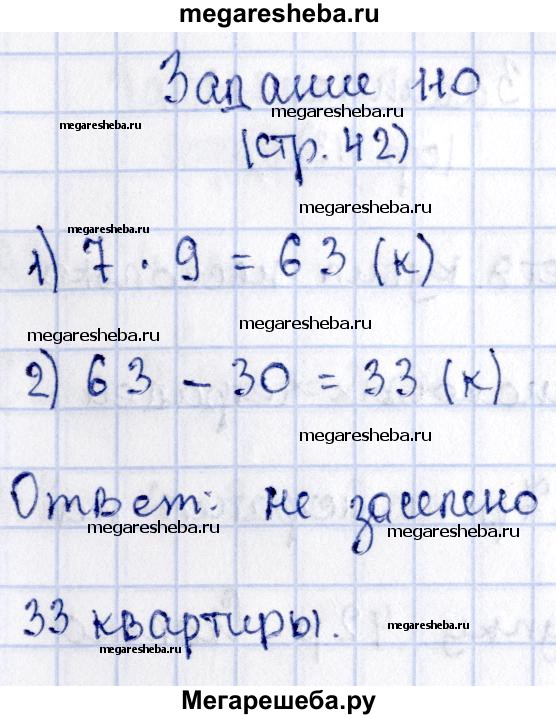 megaresheba.ru
Задание 110
megaresheba.ru
megaresheba.ru
(стр. 42)
megaresheba.ru
1) 7 · 9 = 63 (к)
megaresheba.ru
megaresheba.ru
2) 63 - 30 = 33 (к)
megaresheba.ru
Ответ: не заселено
megaresheba.ru
megaresheba.ru
33 квартиры.
megaresheba.ru
megaresheba.ru
Мегарешеба.ру